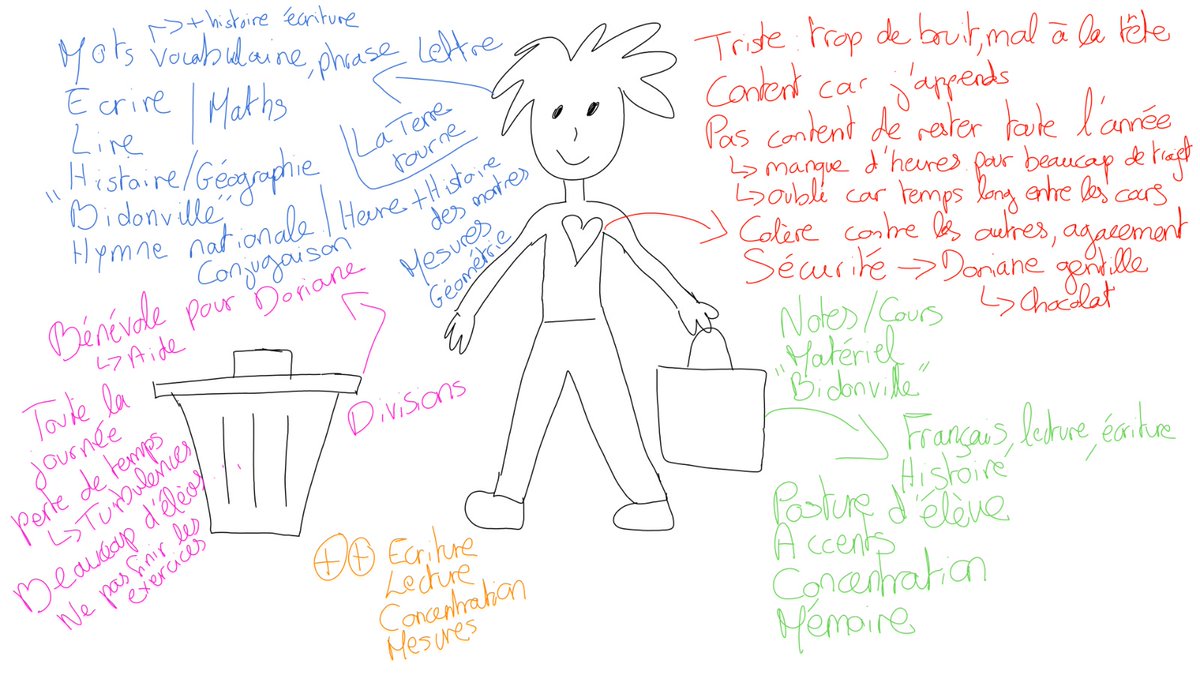 ↱ + histoire écriture
Mots vocabulaire, phrase Lettre
Ecrire | Maths
Lire
Histoire/Géographie
"Bidonville"
Hymne nationale
Conjugaison
La Terre
tourne
Heure + Histoire
des montres
Mesures
Géométrie
Triste : trop de bruit, mal à la tête
Content car j'apprends
Pas content de rester toute l'année
↳ manque d'heures pour beaucoup de trajet
↳ oublié car temps long entre les cours
Colère contre les autres, agacement
Sécurité → Doriane gentille
↳ Chocolat
Bénévole pour Doriane
↳ Aide
Toute la
journée
Divisions
perte de temps
↳ Turbulences
Beaucoup d'élèves
Ne pas finir les
exercices
++ Ecriture
Lecture
Concentration
Mesures
Notes/Cours
Matériel
"Bidonville"
Français, lecture, écriture
Histoire
Posture d'élève
Accents
Concentration
Mémoire